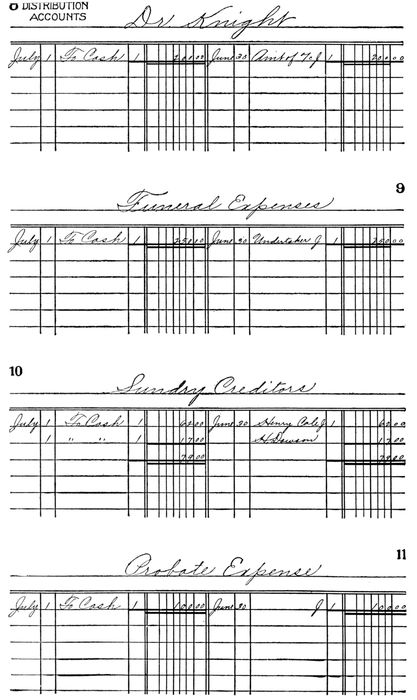 8 DISTRIBUTION
ACCOUNTS
Dr Knight
July 1 To Cash 1 200.00 June 30 Am't of J 1 200.00
9
Funeral Expenses
July 1 To Cash 1 250.00 June 30 Undertaker J 1 250.00
10
Sundry Creditors
July 1 To Cash 1 62.00 June 30 Henry Cole J 1 62.00
1 " " 1 17.00 H Dawson 17.00
79.00 79.00
11
Probate Expense
July 1 To Cash 1 100.00 June 30 J 1 100.00